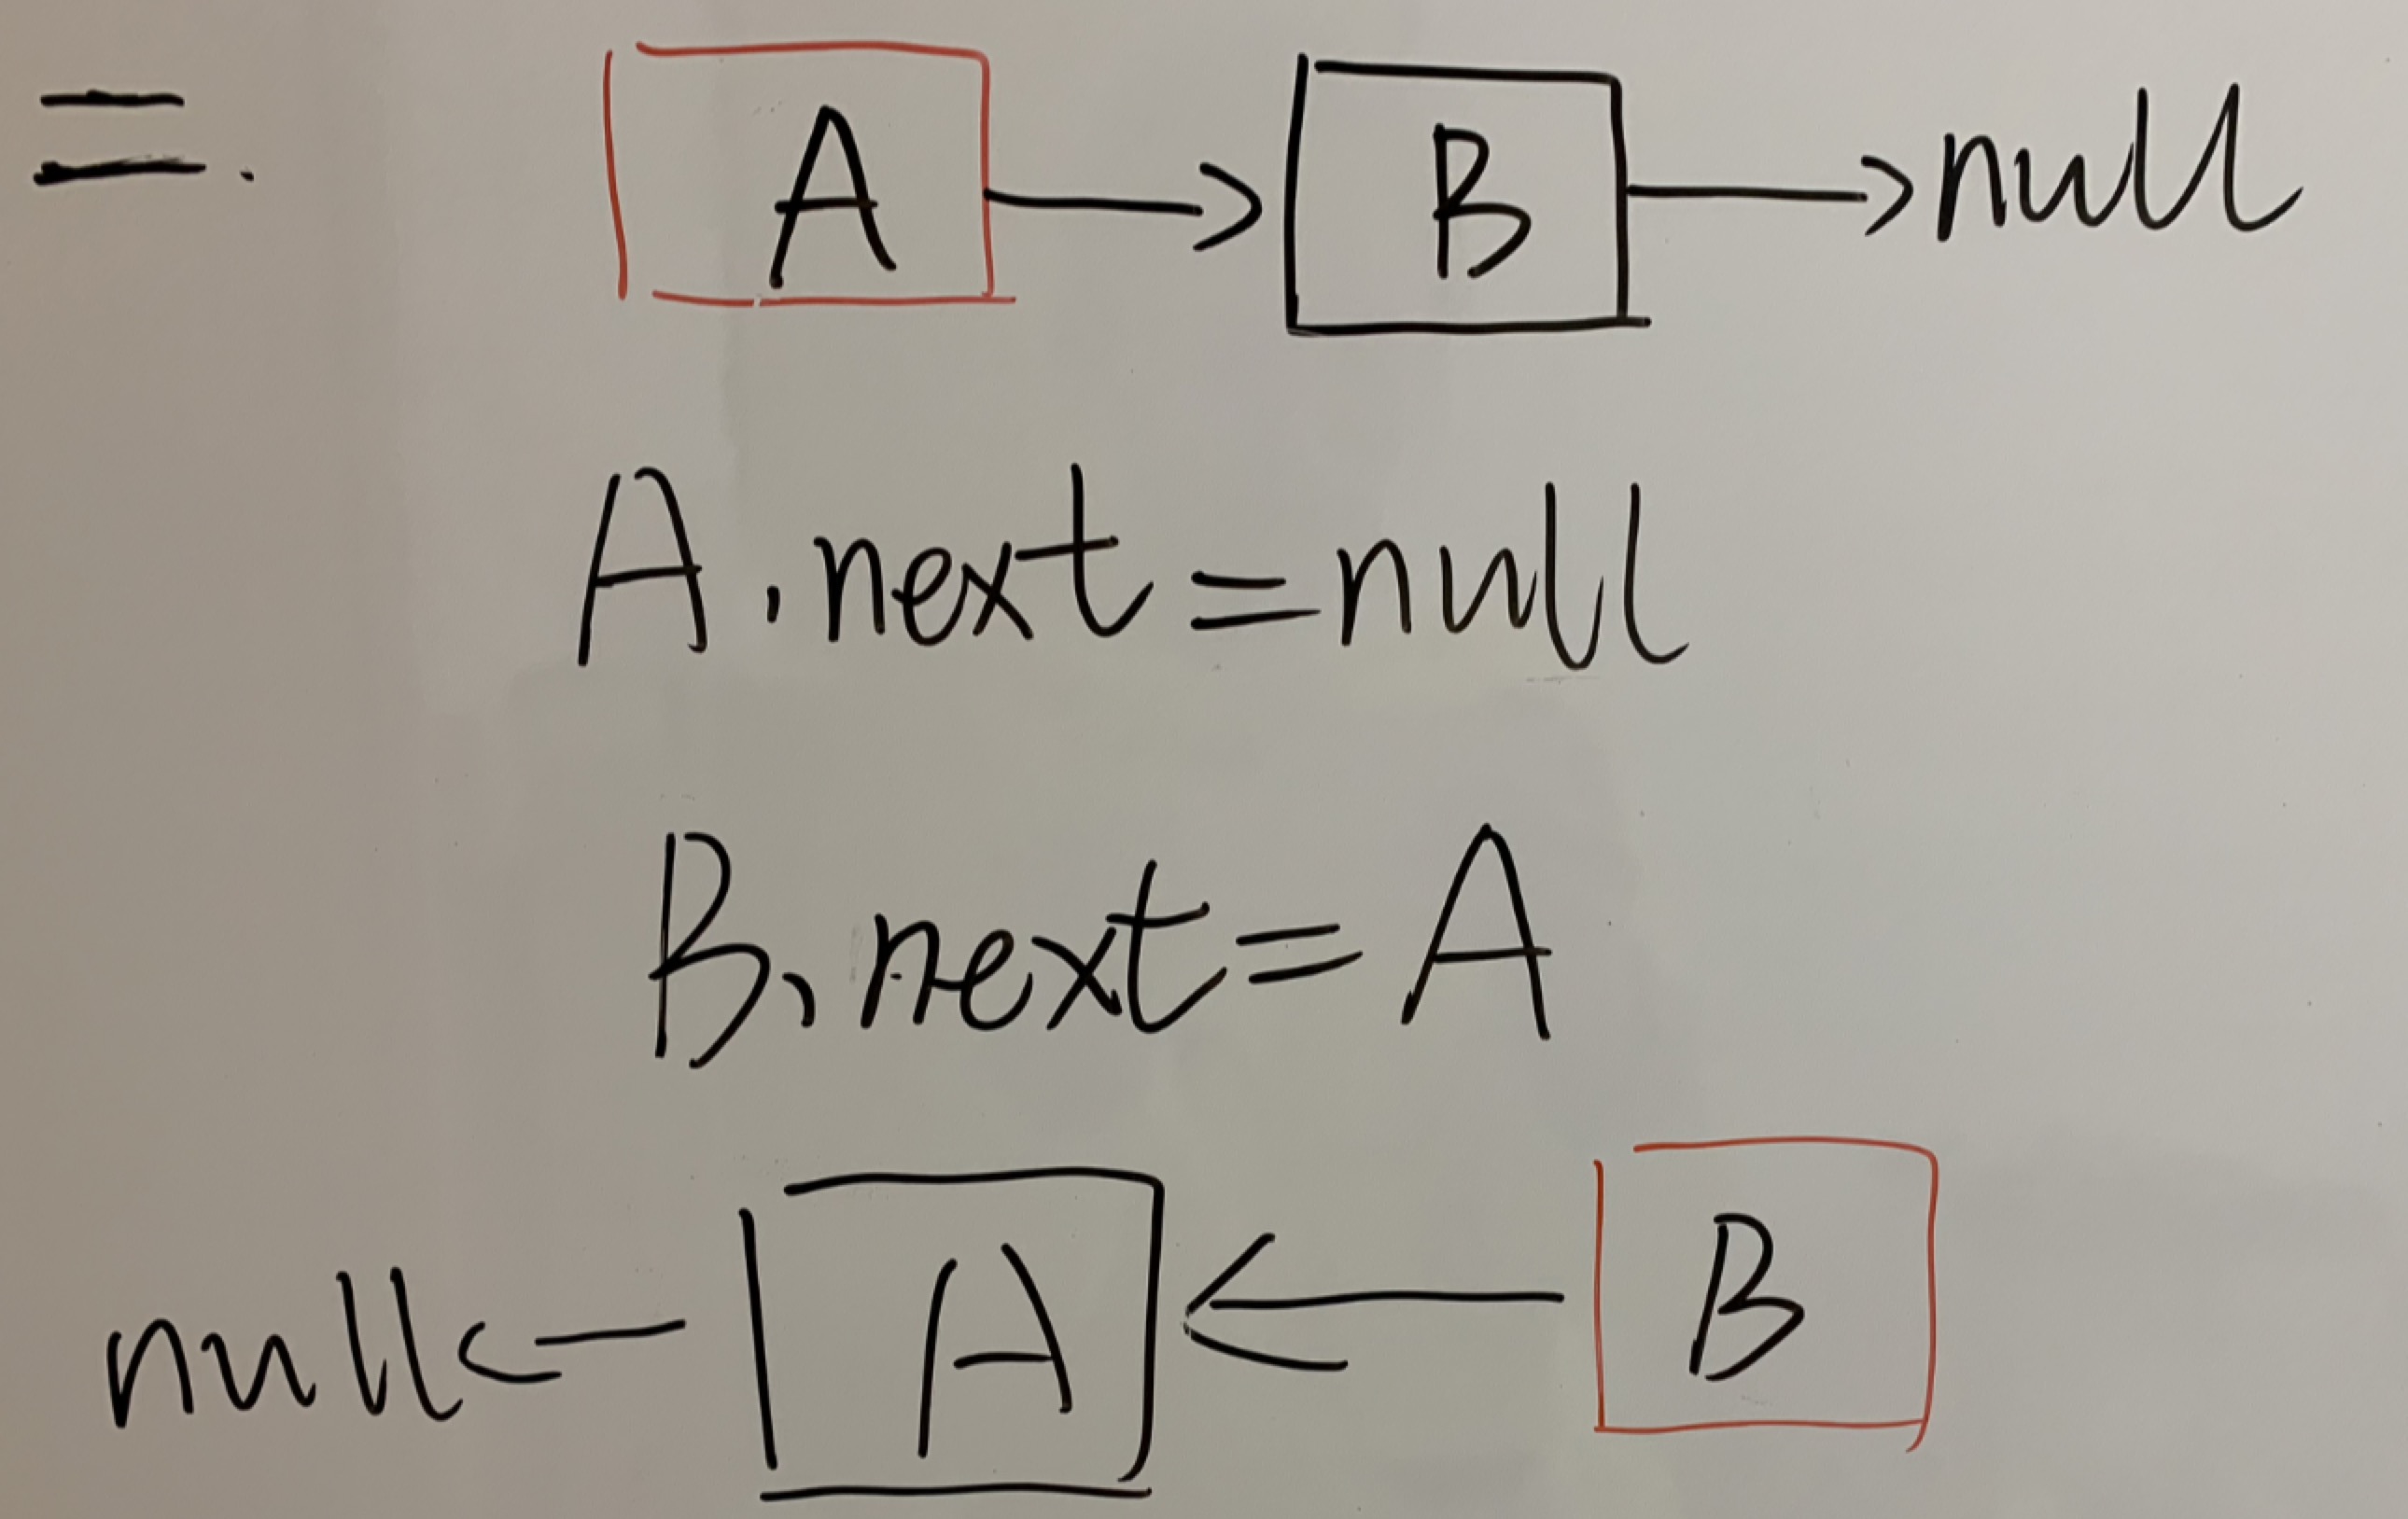 二. A B null
A.next=null
B.next=A
null A B